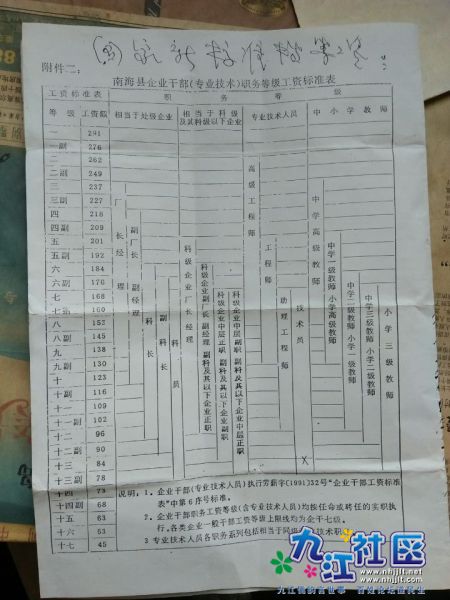 附件二：
南海县企业干部(专业技术)职务等级工资标准表
工资标准表 职务等级
等级 工资额 相当于处级企业 相当于科级及其科级以下企业 专业技术人员 中小学教师
一 291
一副 276
二 262
二副 249
三 237
三副 227
四 218
四副 209
五 201
五副 192
六 184
六副 176
七 168
七副 160
八 152
八副 145
九 138
九副 130
十 123
十副 116
十一 109
十一副 102
十二 96
十二副 90
十三 84
十三副 78
十四 73
十四副 68
十五 63
十六 53
十七 45
厂长经理
副厂长 副经理
科长
副科长
科员
科级企业厂长经理
科级企业副厂长副经理 副科及其以下企业正职
科级企业中层正职 副科及其以下企业副职
科级企业中层副职 副科及其以下企业中层正职
高级工程师
工程师
助理工程师
技术员
X
中学高级教师
中学一级教师 小学高级教师
中学二级教师 小学一级教师
中学三级教师 小学二级教师
小学三级教师
说明：1、企业干部(专业技术人员)执行劳薪字(1991)32号“企业干部工资标准
表”中第6序号标准。
2、企业干部职务工资等级(含专业技术人员)均按任命或聘任的实职执
行。各类企业一般干部工资等级上限线均为企干七级。
3 专业技术人员各职务系列包括相当于同级
技术职
九江社区
www.nhjjlt.net
www.nhjjlt.com